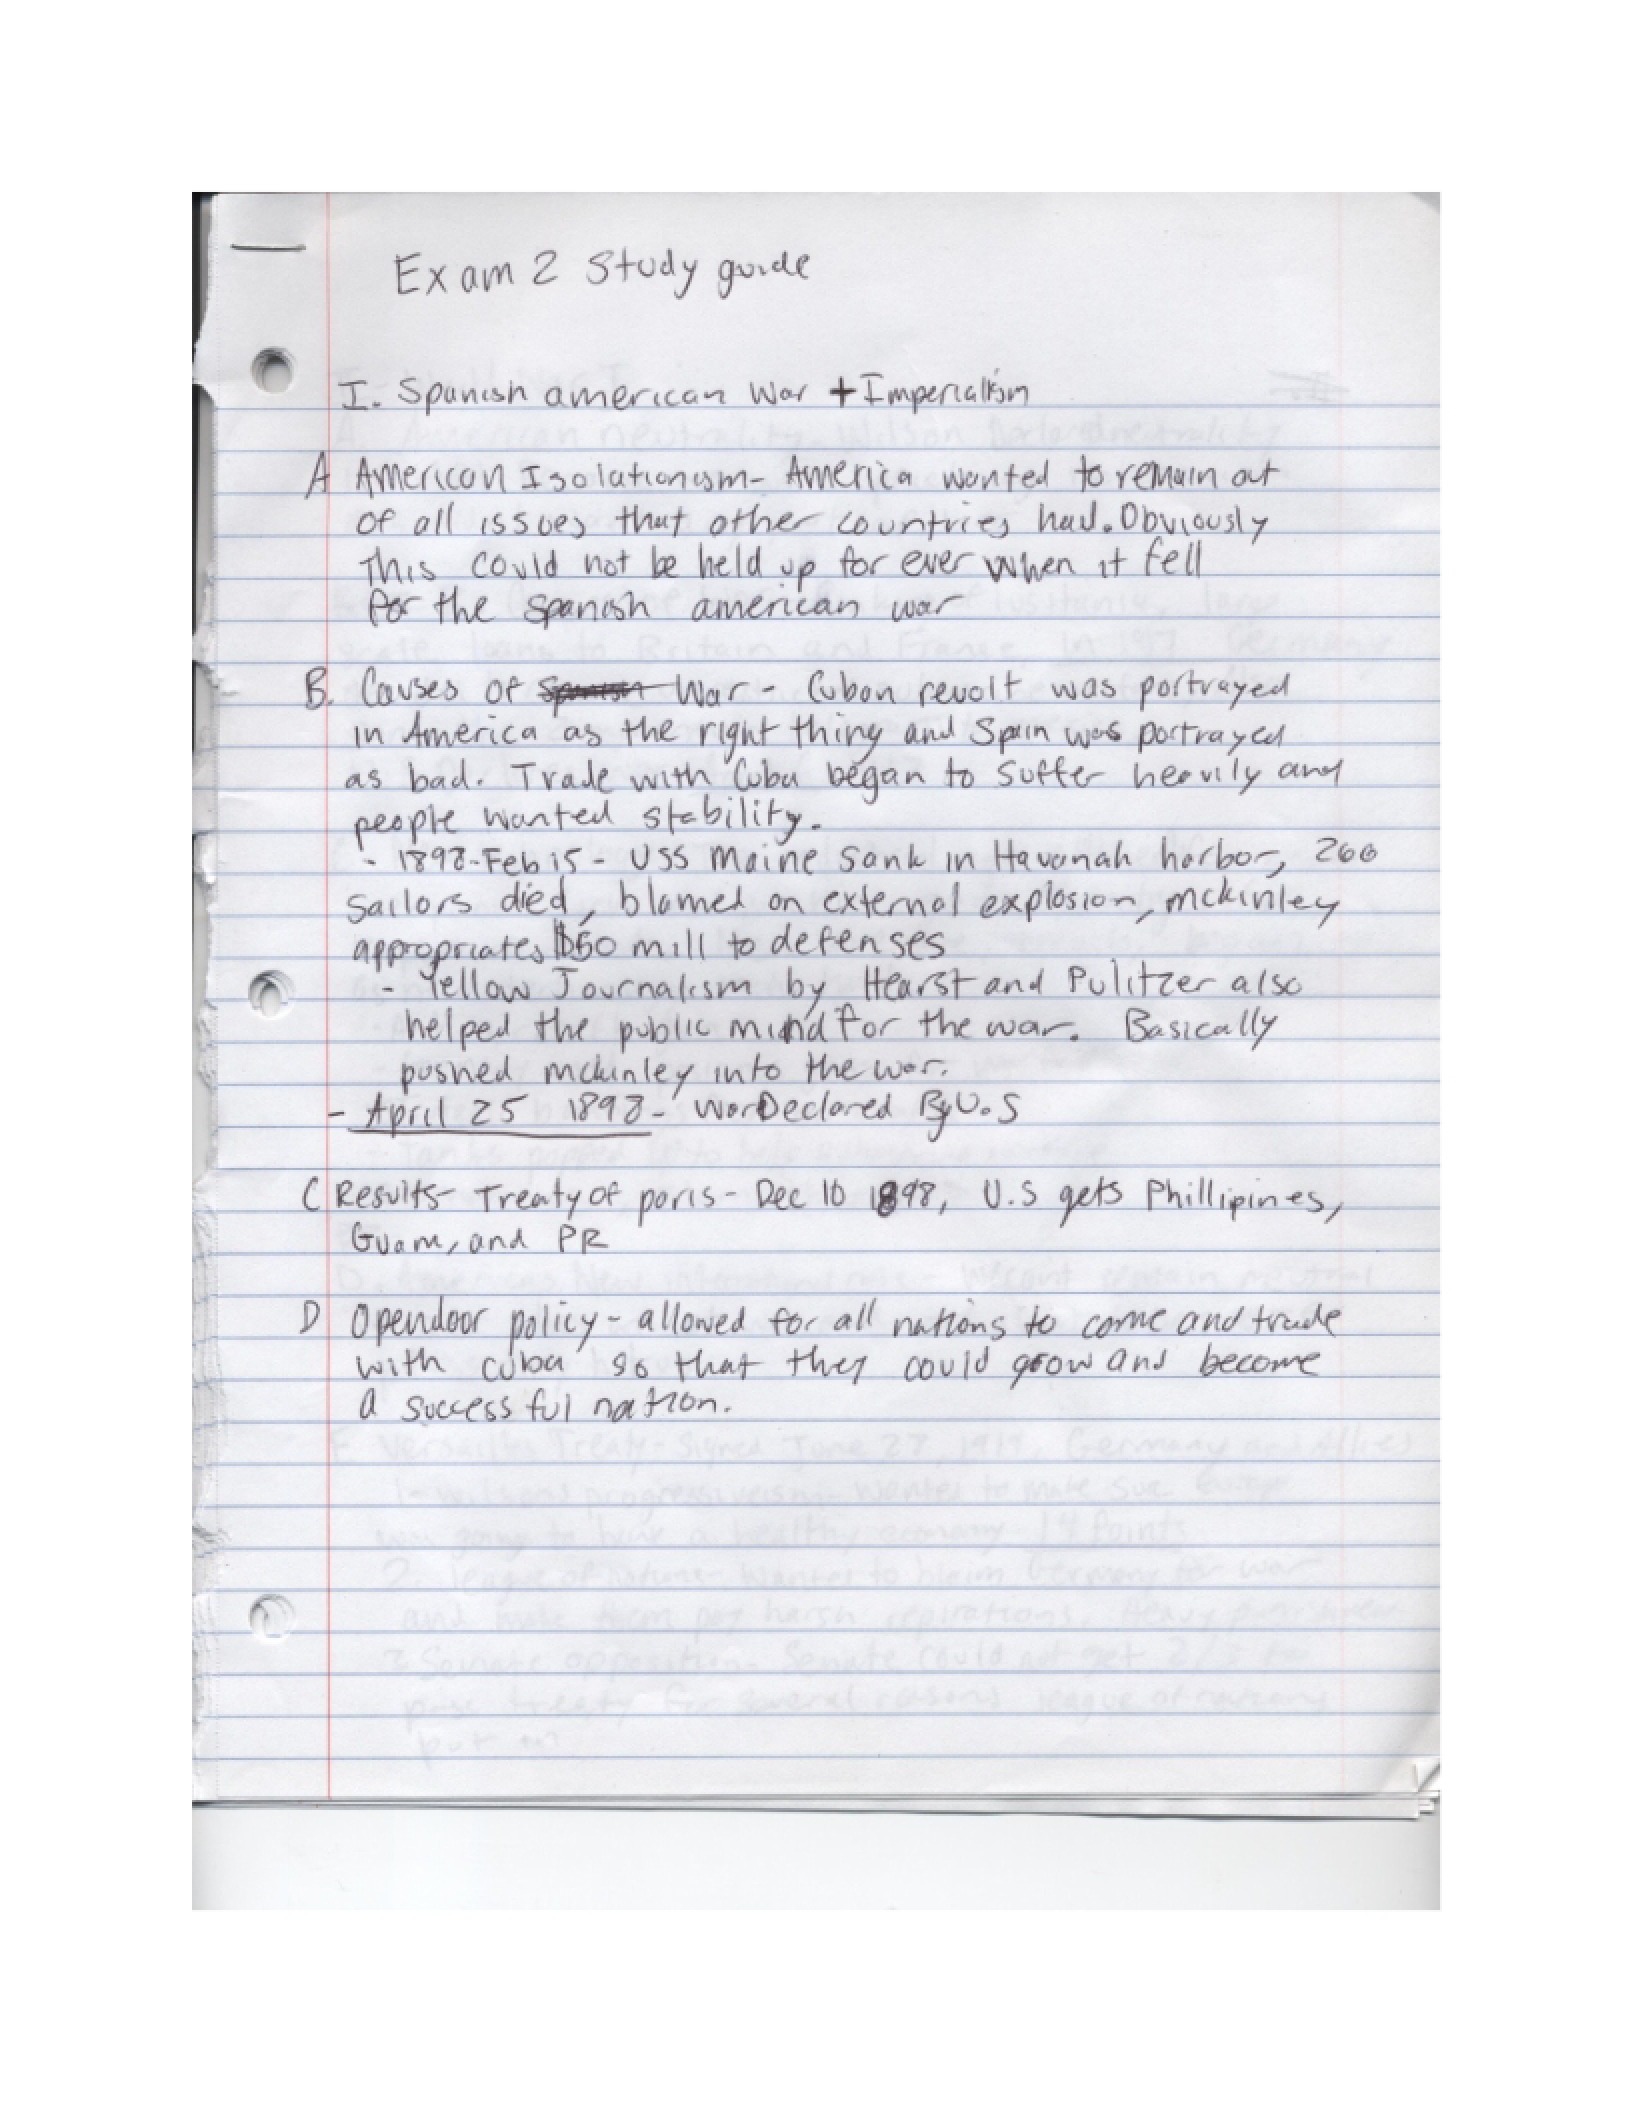 Exam 2 Study guide
I. Spanish american War + Imperialism
A American Isolationism- America wanted to remain out
of all issues that other countries had. Obviously
this could not be held up for ever when it fell
for the spanish american war
B. Causes of War - Cuban revolt was portrayed
in America as the right thing and Spain was portrayed
as bad. Trade with Cuba began to suffer heavily and
people wanted stability.
- 1898-Feb 15 - USS Maine sank in Havanah harbor, 260
sailors died, blamed on external explosion, mckinley
appropriates $50 mill to defenses
- Yellow Journalism by Hearst and Pulitzer also
helped the public mind for the war. Basically
pushed mckinley into the war.
- April 25 1898- War Declared By U.S
C Results- Treaty of paris - Dec 10 1898, U.S gets Phillipines,
Guam, and PR
D Opendoor policy - allowed for all nations to come and trade
with cuba so that they could grow and become
a successful nation.